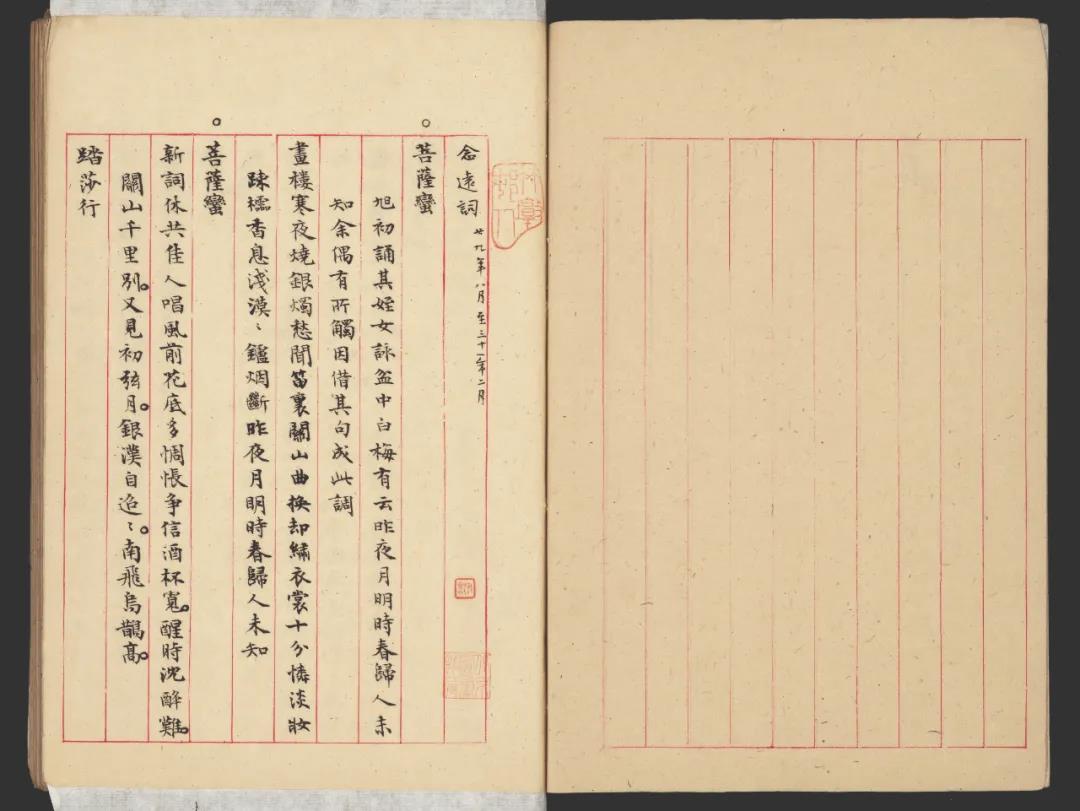 念遠詞 廿九年八月至三十一年二月
菩薩蠻
旭初誦其姪女詠盆中白梅有云昨夜月明時春歸人未
知余偶有所觸因借其句成此調
畫樓寒夜燒銀燭愁聞笛裏關山曲換却繡衣裳十分慵淡妝
疎櫺香息淺漠〻鑪烟斷昨夜月明時春歸人未知
菩薩蠻
新詞休共佳人唱風前花底多惆悵爭信酒杯寬。醒時沈醉難。
關山千里別。又見初弦月。銀漢自迢〻。南飛烏鵲高。
踏莎行